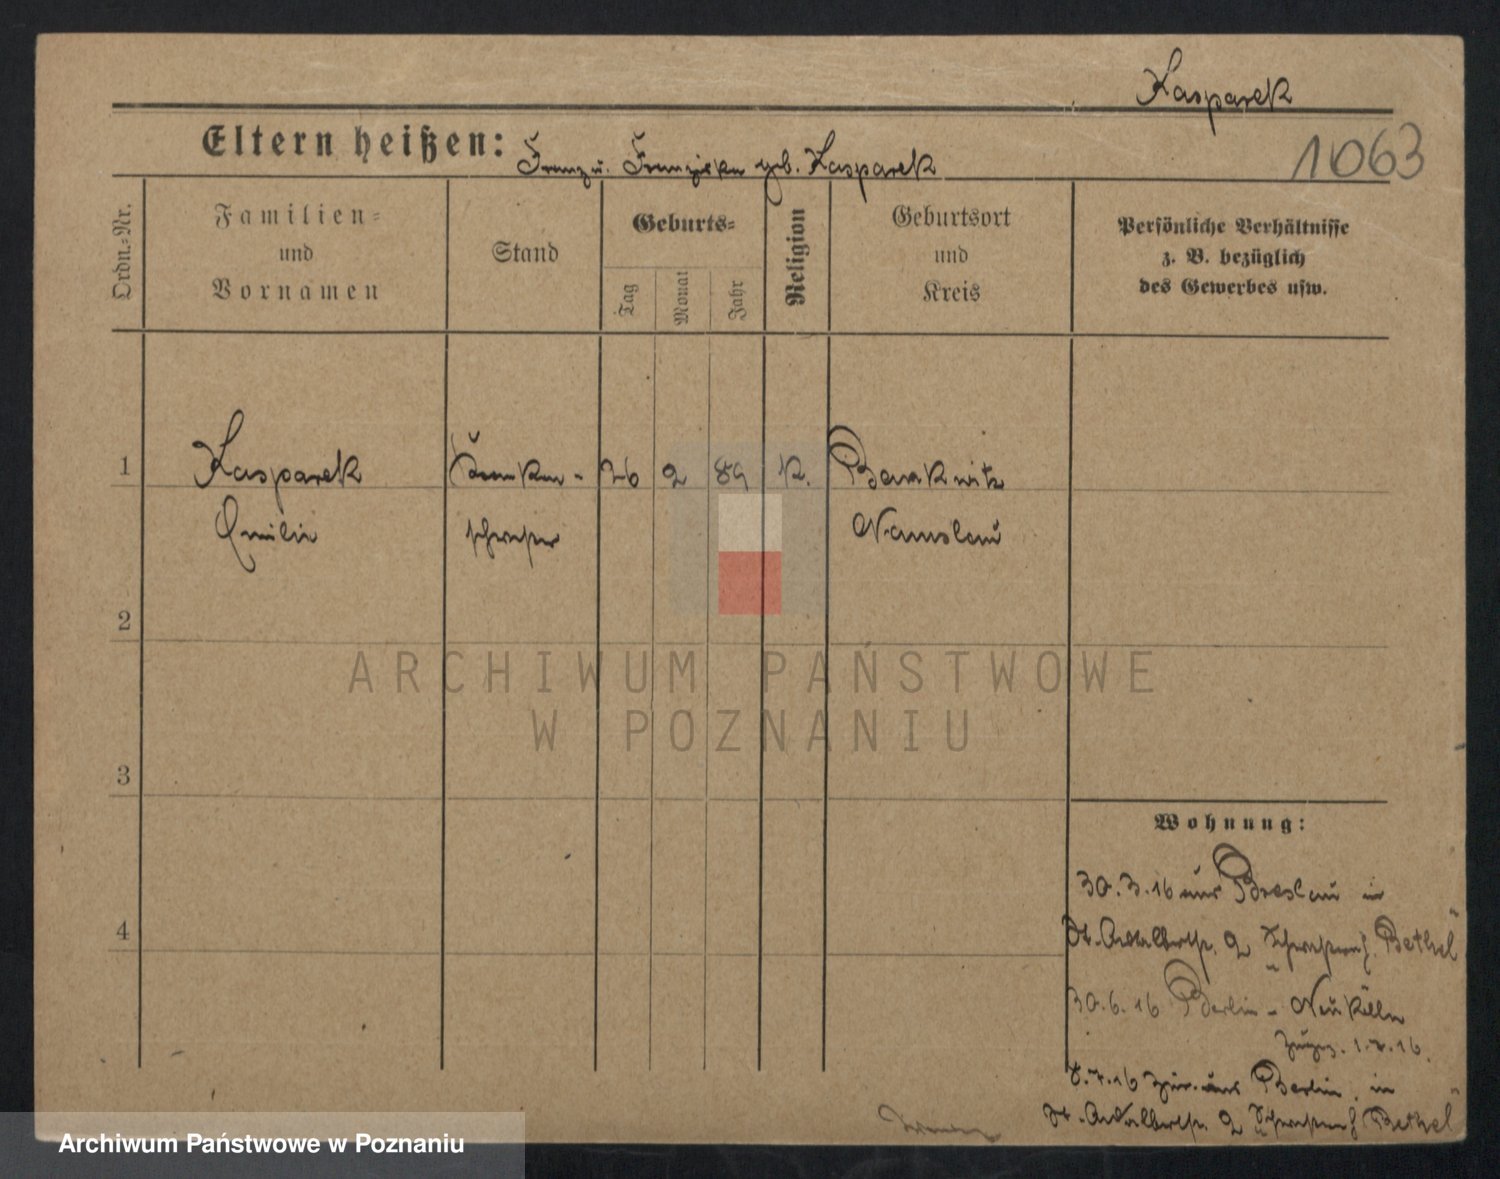 Kasparek
1063
Eltern heißen: Franz u. Franziska geb. Kasparek
Ordn.-Nr.
Familien-
und
Vornamen
Stand
Geburts-
Tag
Monat
Jahr
Religion
Geburtsort
und
Kreis
Persönliche Verhältnisse
z. B. bezüglich
des Gewerbes usw.
1 Kasparek Kranken- 26 2 89 K. Bankwitz
Emilie schwester Namslau
2
3
4
Wohnung:
30.3.16 aus Breslau in
St. Adalbertstr. 2 Schwesternh. "Bethel"
30.6.16 Berlin-Neukölln
1.7.16.
8.7.16 aus Berlin in
St. Adalbertstr. 2 Schwesternh. "Bethel"
ARCHIWUM PAŃSTWOWE
W POZNANIU
Archiwum Państwowe w Poznaniu